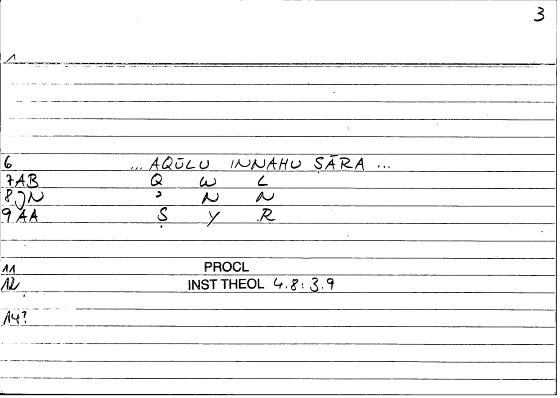 3
1
6 ... AQŪLU INNAHU ṢĀRA ...
7AB Q W L
8JN ʾ N N
9AA Ṣ Y R
11 PROCL
12 INST THEOL 4.8: 3.9
14?